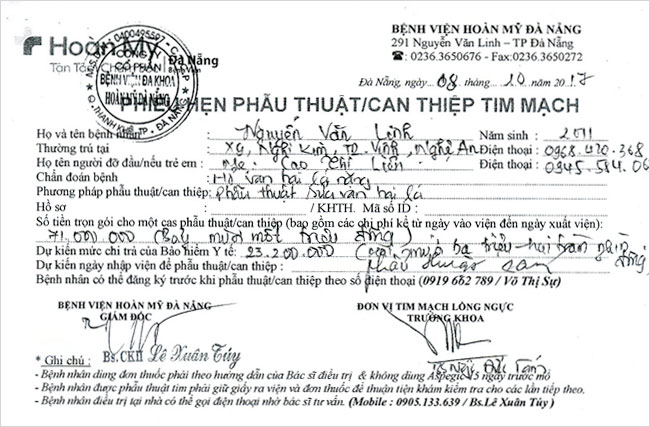 Hoàn Mỹ
Đà Nẵng
Bệnh viện
Tận Tâm
0400495597
CÔNG TY
CỔ PHẦN
BỆNH VIỆN ĐA KHOA
HOÀN MỸ ĐÀ NẴNG
Q. THANH KHÊ - TP. ĐÀ NẴNG
BỆNH VIỆN HOÀN MỸ ĐÀ NẴNG
291 Nguyễn Văn Linh – TP Đà Nẵng
☎: 0236.3650676 - Fax:0236.3650272
Đà Nẵng, ngày 08 tháng 10 năm 2017
PHIẾU HẸN PHẪU THUẬT/CAN THIỆP TIM MẠCH
Họ và tên bệnh nhân : Nguyễn Văn Linh Năm sinh : 2011
Thường trú tại : Xã, Nghi Kim, TP. Vinh, Nghệ An Điện thoại : 0968.470.368
Họ tên người đỡ đầu/nếu trẻ em : Mẹ: Cao Thị Liên Điện thoại : 0945.584.06
Chẩn đoán bệnh : Hở van hai lá nặng
Phương pháp phẫu thuật/can thiệp: Phẫu thuật sửa van hai lá
Hồ sơ : / KHTH. Mã số ID :
Số tiền trọn gói cho một cas phẫu thuật/can thiệp (bao gồm các chi phí kể từ ngày vào viện đến ngày xuất viện):
71.000.000 (Bảy mươi một triệu đồng)
Dự kiến mức chi trả của Bảo hiểm Y tế: 23.200.000 (hai mươi ba triệu hai trăm nghìn đồng)
Dự kiến ngày nhập viện để phẫu thuật/can thiệp :
Bệnh nhân có thể đăng ký trước khi phẫu thuật/can thiệp theo số điện thoại (0919 662 789 / Võ Thị Sự)
BỆNH VIỆN HOÀN MỸ ĐÀ NẴNG
GIÁM ĐỐC
ĐƠN VỊ TIM MẠCH LỒNG NGỰC
TRƯỞNG KHOA
Bs.CKII Lê Xuân Túy
* Ghi chú :
- Bệnh nhân dùng đơn thuốc phải theo hướng dẫn của Bác sĩ điều trị & không dùng Aspegic 5 ngày trước mổ
- Bệnh nhân được phẫu thuật tim phải giữ giấy ra viện và đơn thuốc để thuận tiện khám kiểm tra cho các lần tiếp theo.
- Bệnh nhân điều trị tại nhà có thể gọi điện thoại nhờ bác sĩ tư vấn. (Mobile : 0905.133.639 / Bs.Lê Xuân Túy )